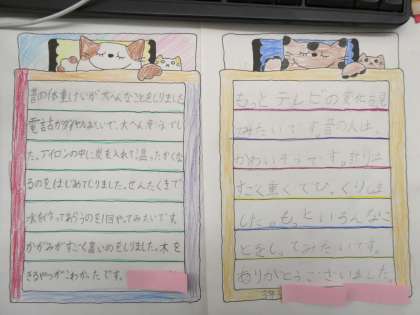 昔の体重けいが大へんなことをしりました
電話がダイヤルみたいで、大へんそうでし
た。アイロンの中に炭を入れて温ったかくな
るのをはじめてしりました。せんたくきで
水を作ってあらうのを1回やってみたいです。
かがみがすごく重いのをしりました。木を
きるやつがこわかったです。
もっとテレビの変化を見
てみたいです。昔の人は、
かわいそうです。針は
すごく重くてび、くりしま
した。もっといろんなこ
とをし、てみたいです。
ありがとうございました。